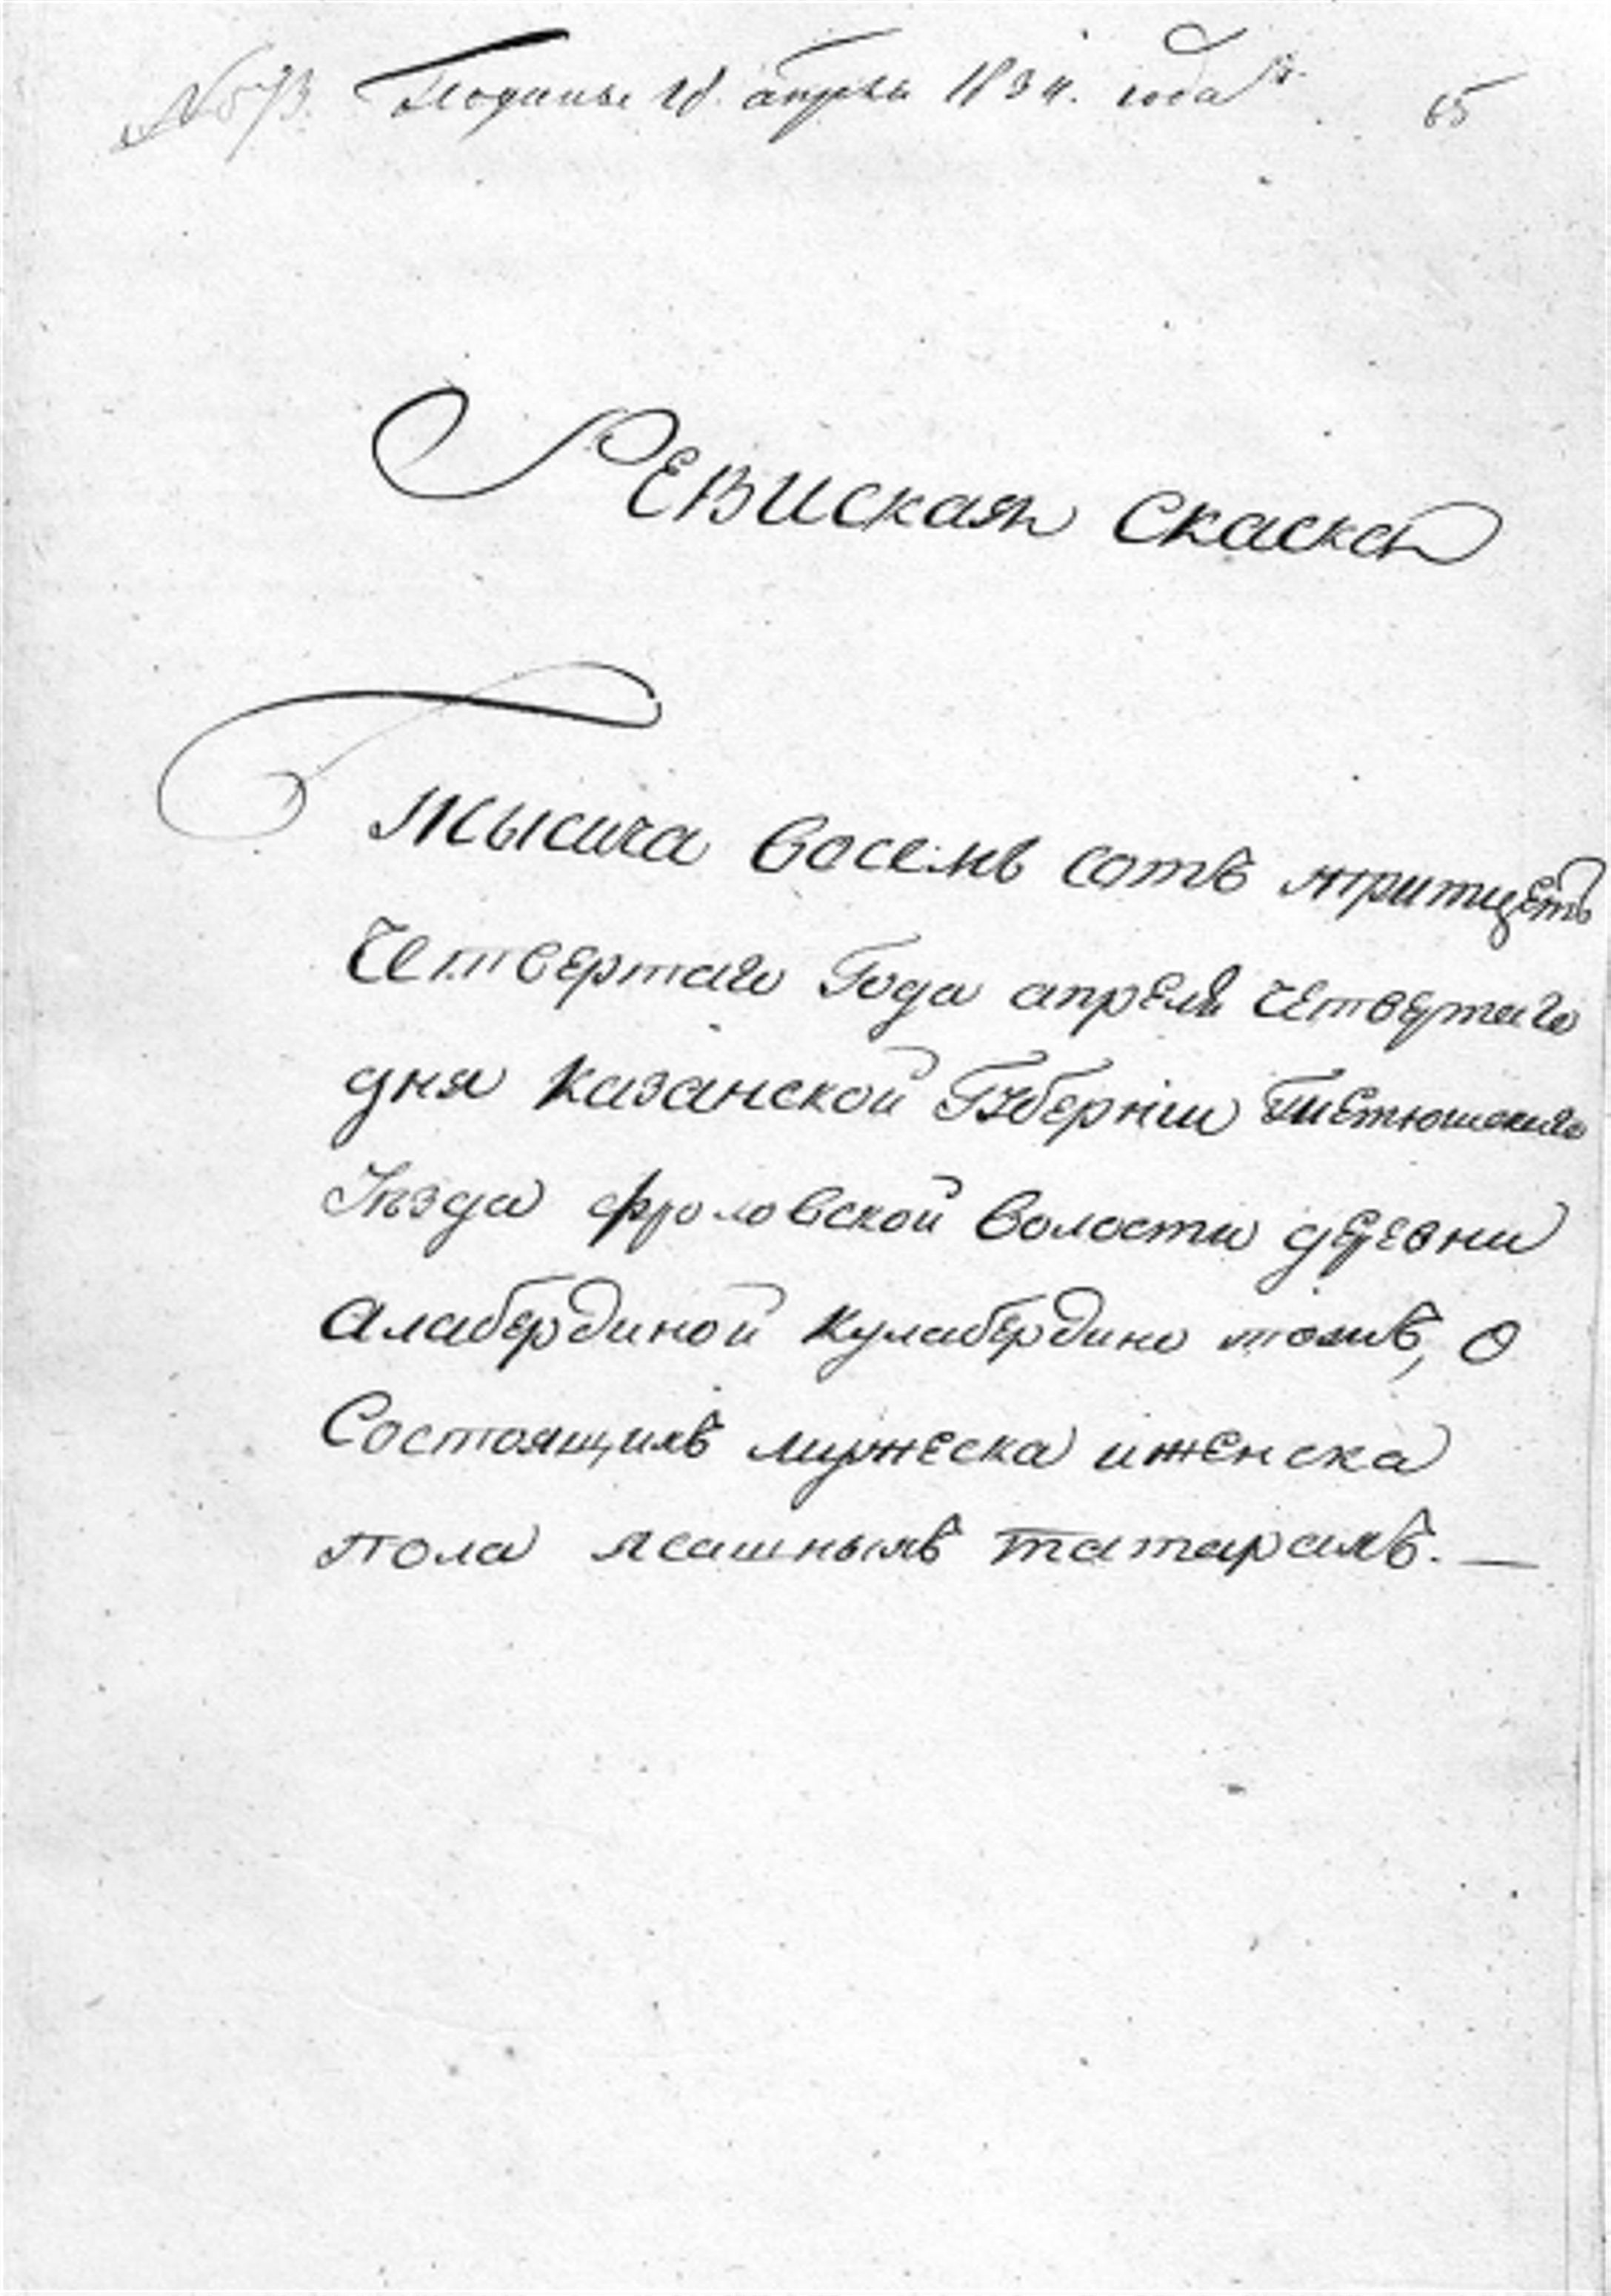 № 573. Поданы 18. апреля 1834. года 65
Ревиская скаска
Тысича восемь сотъ тритцеть
Четвертаго Года апреля четвертаго
дня казанской Губерніи Тетюшскаго
Уезда фроловской волости деревни
алабердиной кулабердино тожъ, о
Состоящихъ мужеска иженска
пола ясашныхъ татарахъ. —